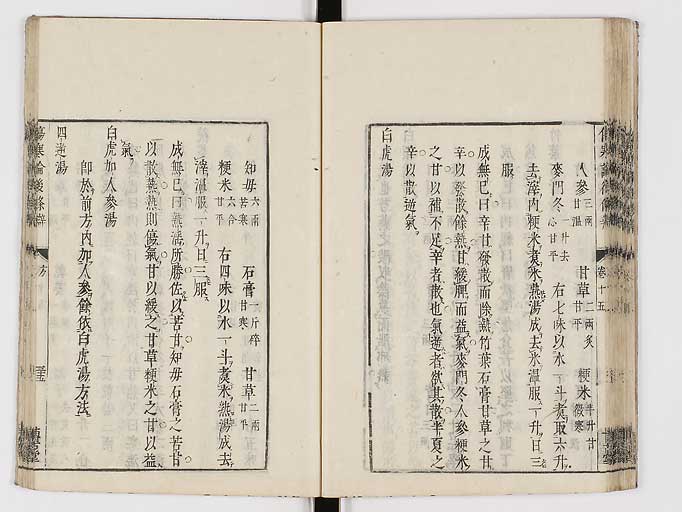 人參 三兩甘溫 甘草 二兩炙甘平 粳米 半升甘微寒
麥門冬 一升去心甘平 右七味以水一斗煮取六升
去滓內粳米煮米熟湯成去米溫服一升日三
服
成無巳曰辛甘發散而除熱竹葉石膏甘草之甘
辛以發散餘熱甘緩脾而益氣麥門冬人參粳米
之甘以補不足辛者散也氣逆者欲其散半夏之
辛以散逆氣
白虎湯
卷十五
知母 六兩苦寒 石膏 一斤碎甘寒 甘草 二兩甘平
粳米 六合甘平 右四味以水一斗煮米熟湯成去
滓溫服一升日三服
成無巳曰熱淫所勝佐以苦甘知母石膏之苦甘
以散熱熱則傷氣甘以緩之甘草粳米之甘以益
氣
白虎加人參湯
卽於前方內加人參餘依白虎湯方法
四逆湯
傷寒論後條辨
方